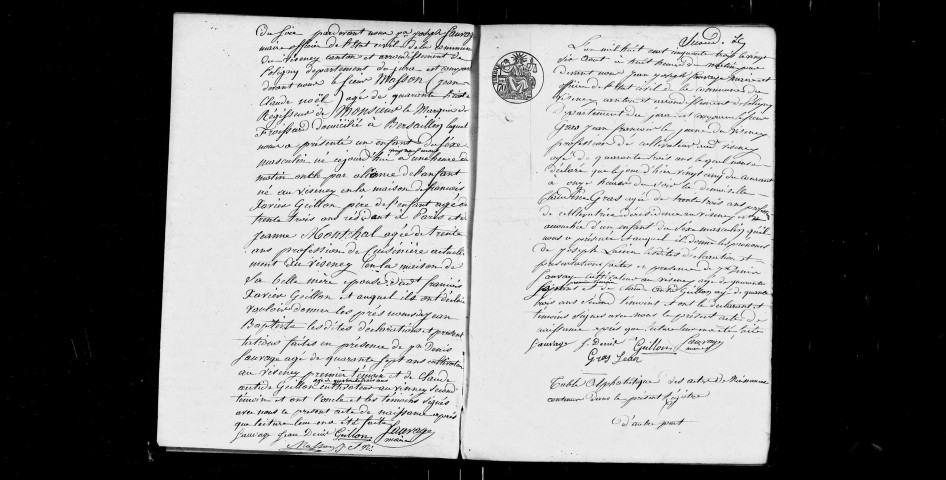 du soir pardevant nous jn joseph Sauvage
maire officier de l'Etat civil de la commune
du viseney canton et arrondissement de
Poligny département du jura est comparu
devant nous le sieur Masson (jean
Claude noël) agé de quarante
Régisseur de Monsieur le Marquis de
Froissard domicilié à Bersaillin lequel
nous a présenté un enfant du séxe
masculin né cejourd'hui à une heure du
matin oncle par aliance de l'enfant
né au viseney en la maison de francois
Xavier Guillon père de l'enfant agé de
trente trois ans résidant à Paris et de
jeanne Montchal agée de trente
ans profession de Cuisinière actuelle
ment au viseney en la maison de
sa belle mère epouse dudit francois
Xavier Guillon et auquel ils ont déclaré
vouloir donner les prénoms de jean
Baptiste lesdites déclarations et présen
tations faites en présence de jn Denis
Sauvage agé de quarante sept ans cultivateur
au viseney premier témoin et de Claude
Guillon cultivateur au viseney second
témoin et ont l'oncle et les témoins signés
avec nous le présent acte de naissance après
que lecture leur en a été faite
Sauvage jean Denis Guillon Sauvage
maire
Masson J. Cl.
Second
L'an mil huit cent cinquante trois le vingt
six août à huit heures du matin par
devant nous jean joseph Sauvage maire et
officier de l'Etat civil de la commune du
viseney canton et arrondissement de Poligny
Département du jura est comparu le sieur
Gros jean francois le jeune du viseney
profession de cultivateur audit viseney
agé de quarante trois ans lequel nous a
déclaré que le jour d'hier vingt cinq du courant
à onze heures du soir la demoiselle
Gros agée de trente trois ans
de cultivatrice demeurant au viseney est
accouchée d'un enfant du sexe masculin qu'il
nous a présenté et auquel il donne les prénoms
de joseph Lucien lesdites déclaration et
présentations faites en présence de jn Denis
Sauvage cultivateur au viseney agé de quarante
sept ans et de Claude Guillon agé de quarante
trois ans second témoins et ont le déclarant et
témoins signés avec nous le présent acte de
naissance après que lecture leur en a été faite
Sauvage J. Denis Guillon Sauvage
maire
Gros jean
Table Alphabétique des actes de Naissance
contenus dans le présent registre
d'autre part